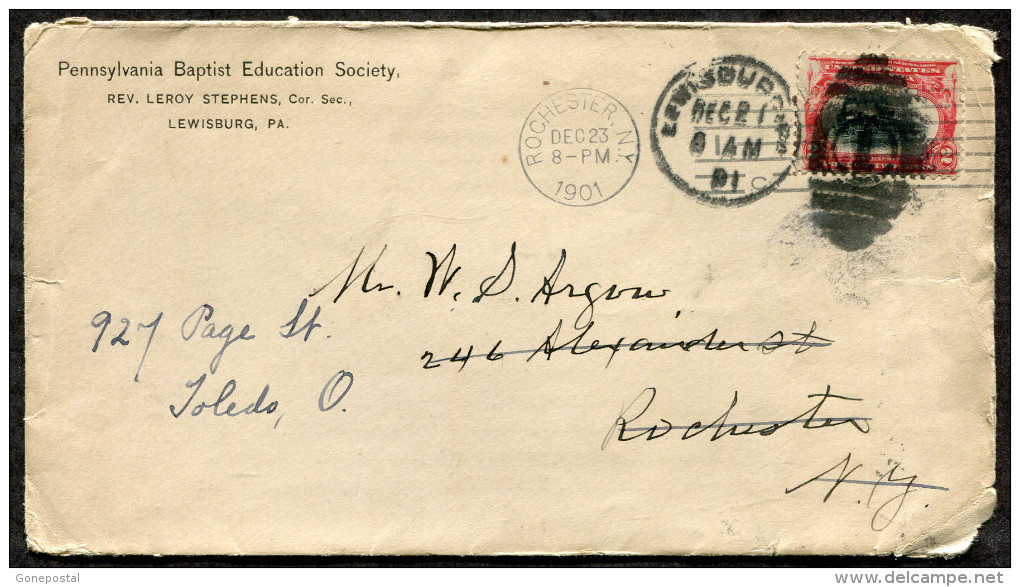 Pennsylvania Baptist Education Society,
REV. LEROY STEPHENS, Cor. Sec.,
LEWISBURG, PA.
ROCHESTER, N.Y.
DEC 23
8-PM
1901
LEWISBURG
DEC 21
9 AM
01
C
UNITED STATES
Mr. W. S. Argow
246 Alexander St
Rochester
N.Y.
927 Page St.
Toledo, O.
Gonepostal